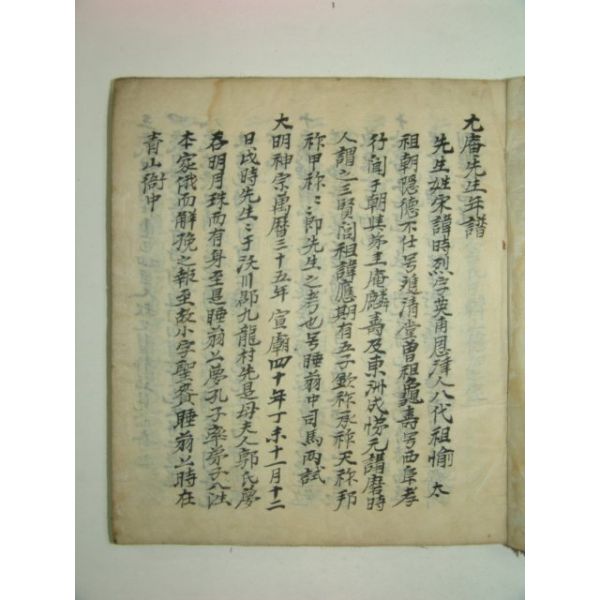 尤庵先生年譜
先生姓宋諱時烈字英甫恩津人八代祖愉 太
祖朝隱德不仕号雙清堂曾祖龜壽号西阜孝
行聞于朝其弟圭庵麟壽及東洲成悌元講磨時
人謂之三賢閭祖諱應期有五子欽祚承祚天祚邦
祚甲祚〻〻卽先生之考也号睡翁中司馬兩試
大明神宗萬曆三十五年 宣廟四十年丁未十一月十二
日戌時先生〻于沃川郡九龍村先是母夫人郭氏夢
吞明月珠而有身至是睡翁公夢孔子率弟子八法
本家俄而解娩之報至故小字聖賚睡翁公時在
青山衙中